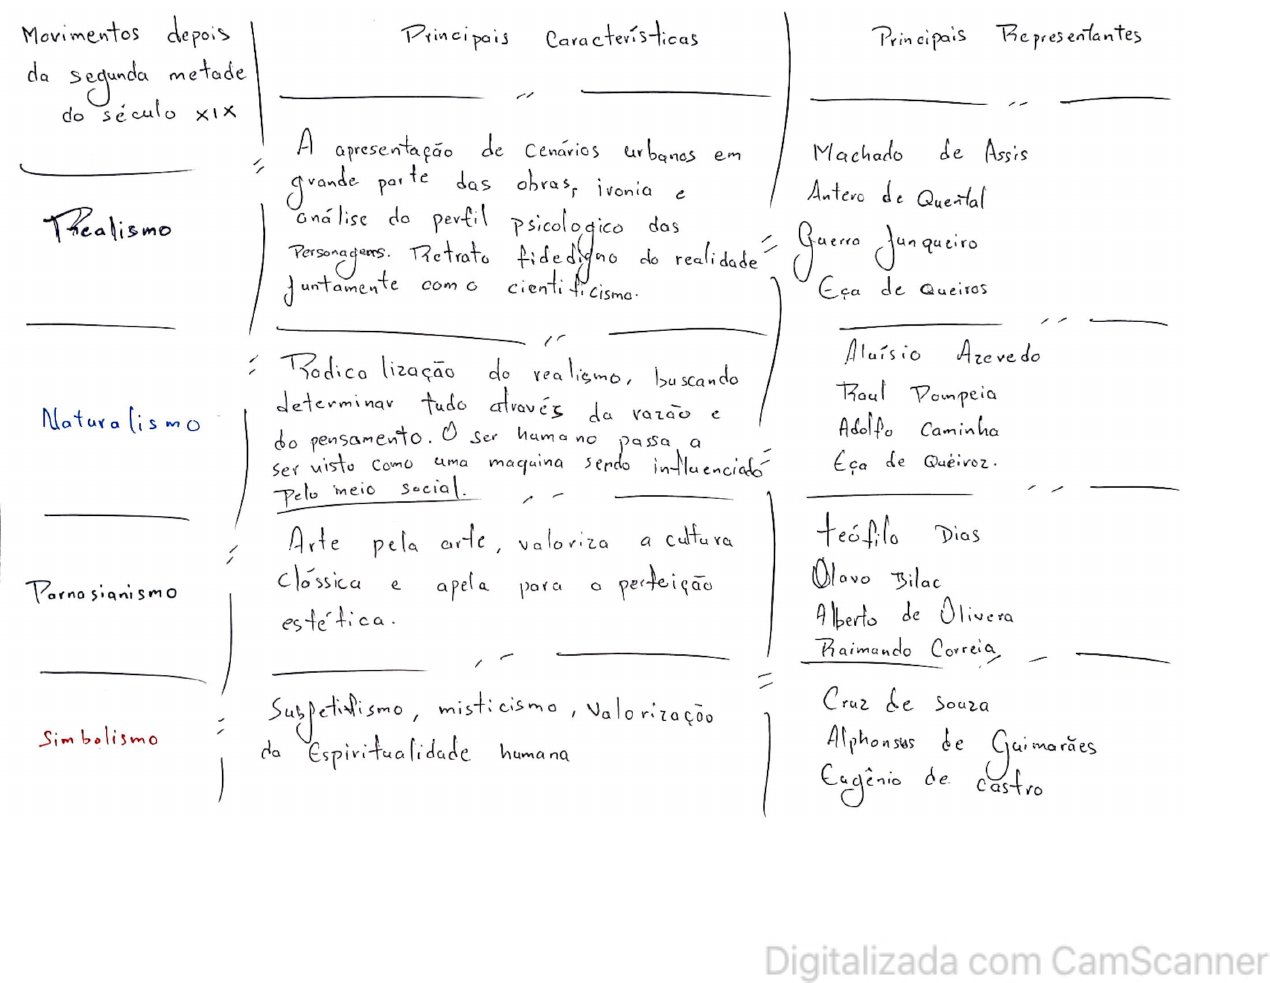 Movimentos depois
da segunda metade
do século XIX
Principais Características
Principais Representantes
Realismo
A apresentação de cenários urbanos em
grande parte das obras, ironia e
análise do perfil psicologico das
Personagens. Retrato fidedigno da realidade
juntamente com o cientificismo.
Machado de Assis
Antero de Quental
Guerra Junqueiro
Eça de Queiros
Naturalismo
Radicalização do realismo, buscando
determinar tudo através da razão e
do pensamento. O ser humano passa a
ser visto como uma maquina sendo influenciado
Pelo meio social.
Aluísio Azevedo
Raul Pompeia
Adolfo Caminha
Eça de Queiroz.
Parnasianismo
Arte pela arte, valoriza a cultura
clássica e apela para a perfeição
estética.
Teófilo Dias
Olavo Bilac
Alberto de Olivera
Raimando Correia
Simbolismo
Subjetivismo, misticismo, Valorização
da Espiritualidade humana
Cruz de Souza
Alphonsus de Guimarães
Eugênio de castro
Digitalizada com CamScanner